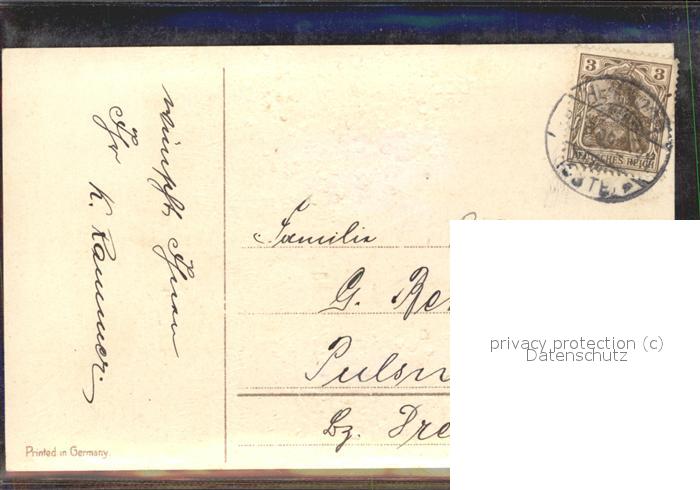 wünscht Ihnen
Ihr K. Kammer.
3 3
DEUTSCHES REICH
Familie
G. Re
Pulsn
Bz. Dre
privacy protection (c)
Datenschutz
Printed in Germany.